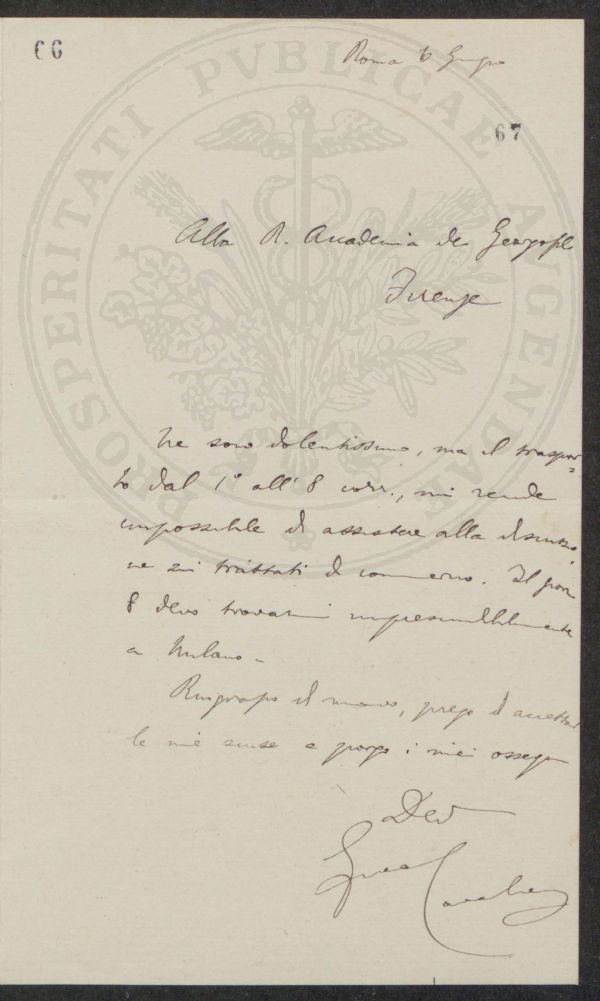 66
Roma 6 Giugno
67
PROSPERITATI PVBLICAE AVGENDAE
Alla R. Accademia dei Georgofili
Firenze
Ne sono dolentissimo, ma il traspor=
to dal 1° all' 8 corr., mi rende
impossibile di assistere alla discussio
ne sui trattati di commercio. Il giorno
8 devo trovarmi imprescindibilmente
a Milano.
Ringrazio di nuovo, prego d'accettare
le mie scuse e porgo i miei ossequi
Dev